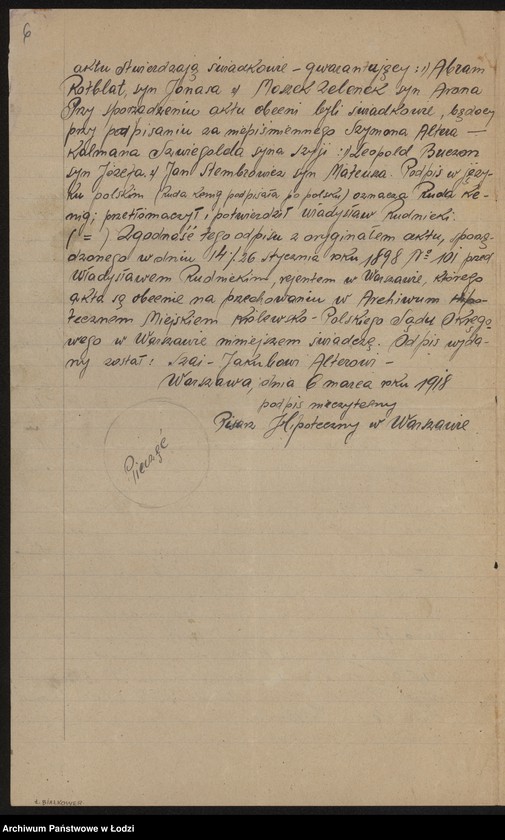 6
aktu stwierdzają świadkowie – gwarantujący: 1) Abram
Rotblat, syn Jonasa i Moszek Zelonek syn Arona
Przy sporządzeniu aktu obecni byli świadkowie, będący
przy podpisaniu za niepiśmiennego Szymona Altera —
Kalmana Szwiegolda syna Szyji: 1) Leopold Buczon
syn Józefa, i Jan Stembrowicz syn Mateusza. Podpis w języ-
ku polskim (Ruda Kenig podpisała po polsku) oznacza Ruda Ke-
nig; przetłómaczył i potwierdził Władysław Rudnicki:
( = ) Zgodność tego odpisu z oryginałem aktu, sporzą-
dzonego w dniu 14/26 stycznia roku 1898 № 101 przed
Władysławem Rudnickim, rejentem w Warszawie, którego
akta są obecnie na przechowaniu w Archiwum Hipo-
tecznem Miejskiem Królewsko-Polskiego Sądu Okręgo-
wego w Warszawie niniejszem świadczę. Odpis wyda-
ny został: Szai-Jakubowi Alterowi –
Warszawa, dnia 6 marca roku 1918
podpis nieczytelny
Pisarz Hipoteczny w Warszawie
Pieczęć
Archiwum Państwowe w Łodzi